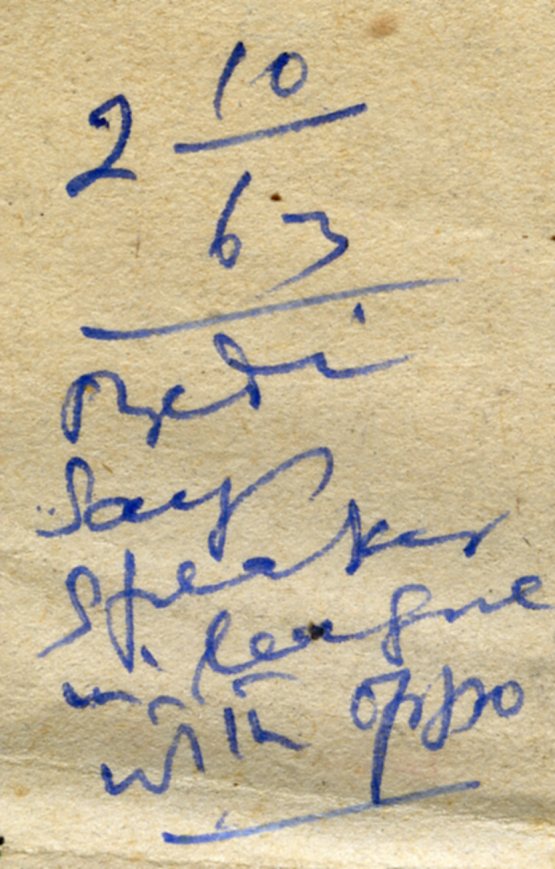 2 10
63
says
speaker
in league
with oppo